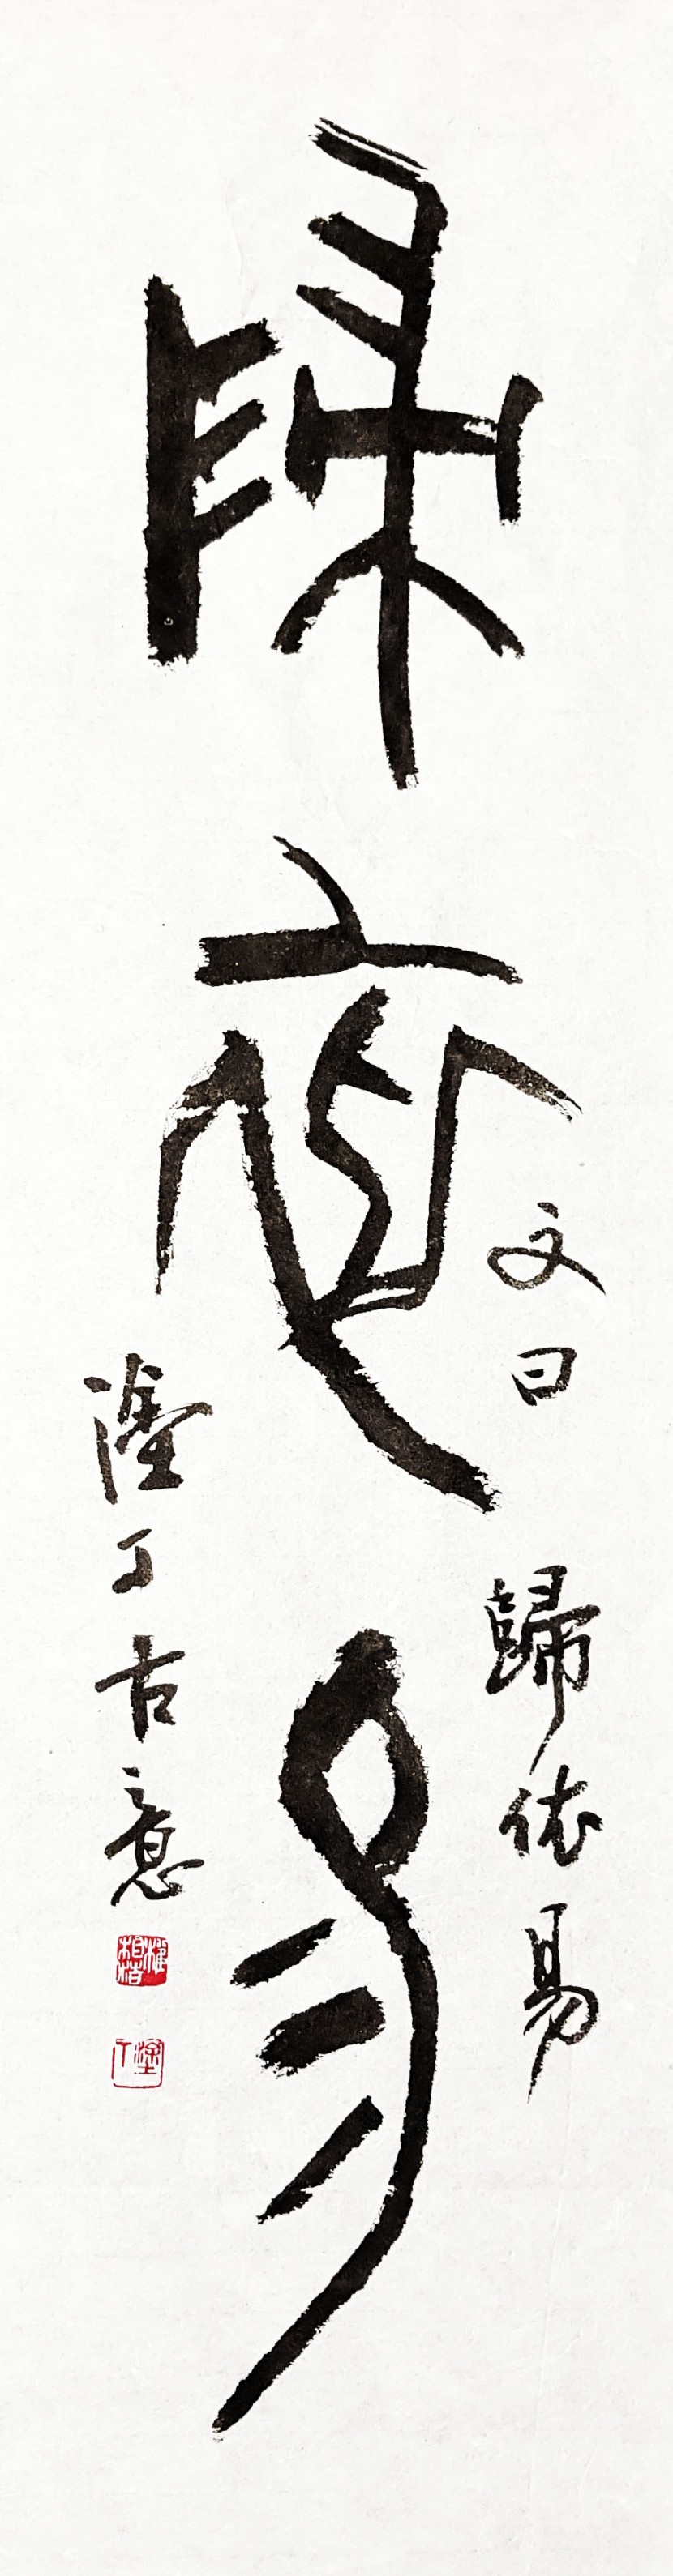 歸依易
文曰
歸依易
丁古意